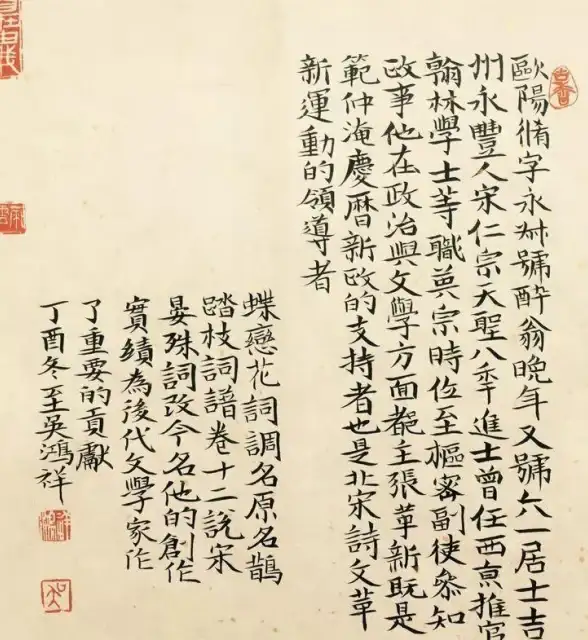 歐陽脩字永叔號醉翁晚年又號六一居士吉
州永豐人宋仁宗天聖八年進士曾任西京推官
翰林學士等職英宗時位至樞密副使叅知
政事他在政治與文學方面都主張革新既是
範仲淹慶曆新政的支持者也是北宋詩文革
新運動的領導者
蝶戀花詞調名原名鵲
踏枝詞譜卷十二說宋
晏殊詞改今名他的創作
實績為後代文學家作
了重要的貢獻
丁酉冬至吳鴻祥